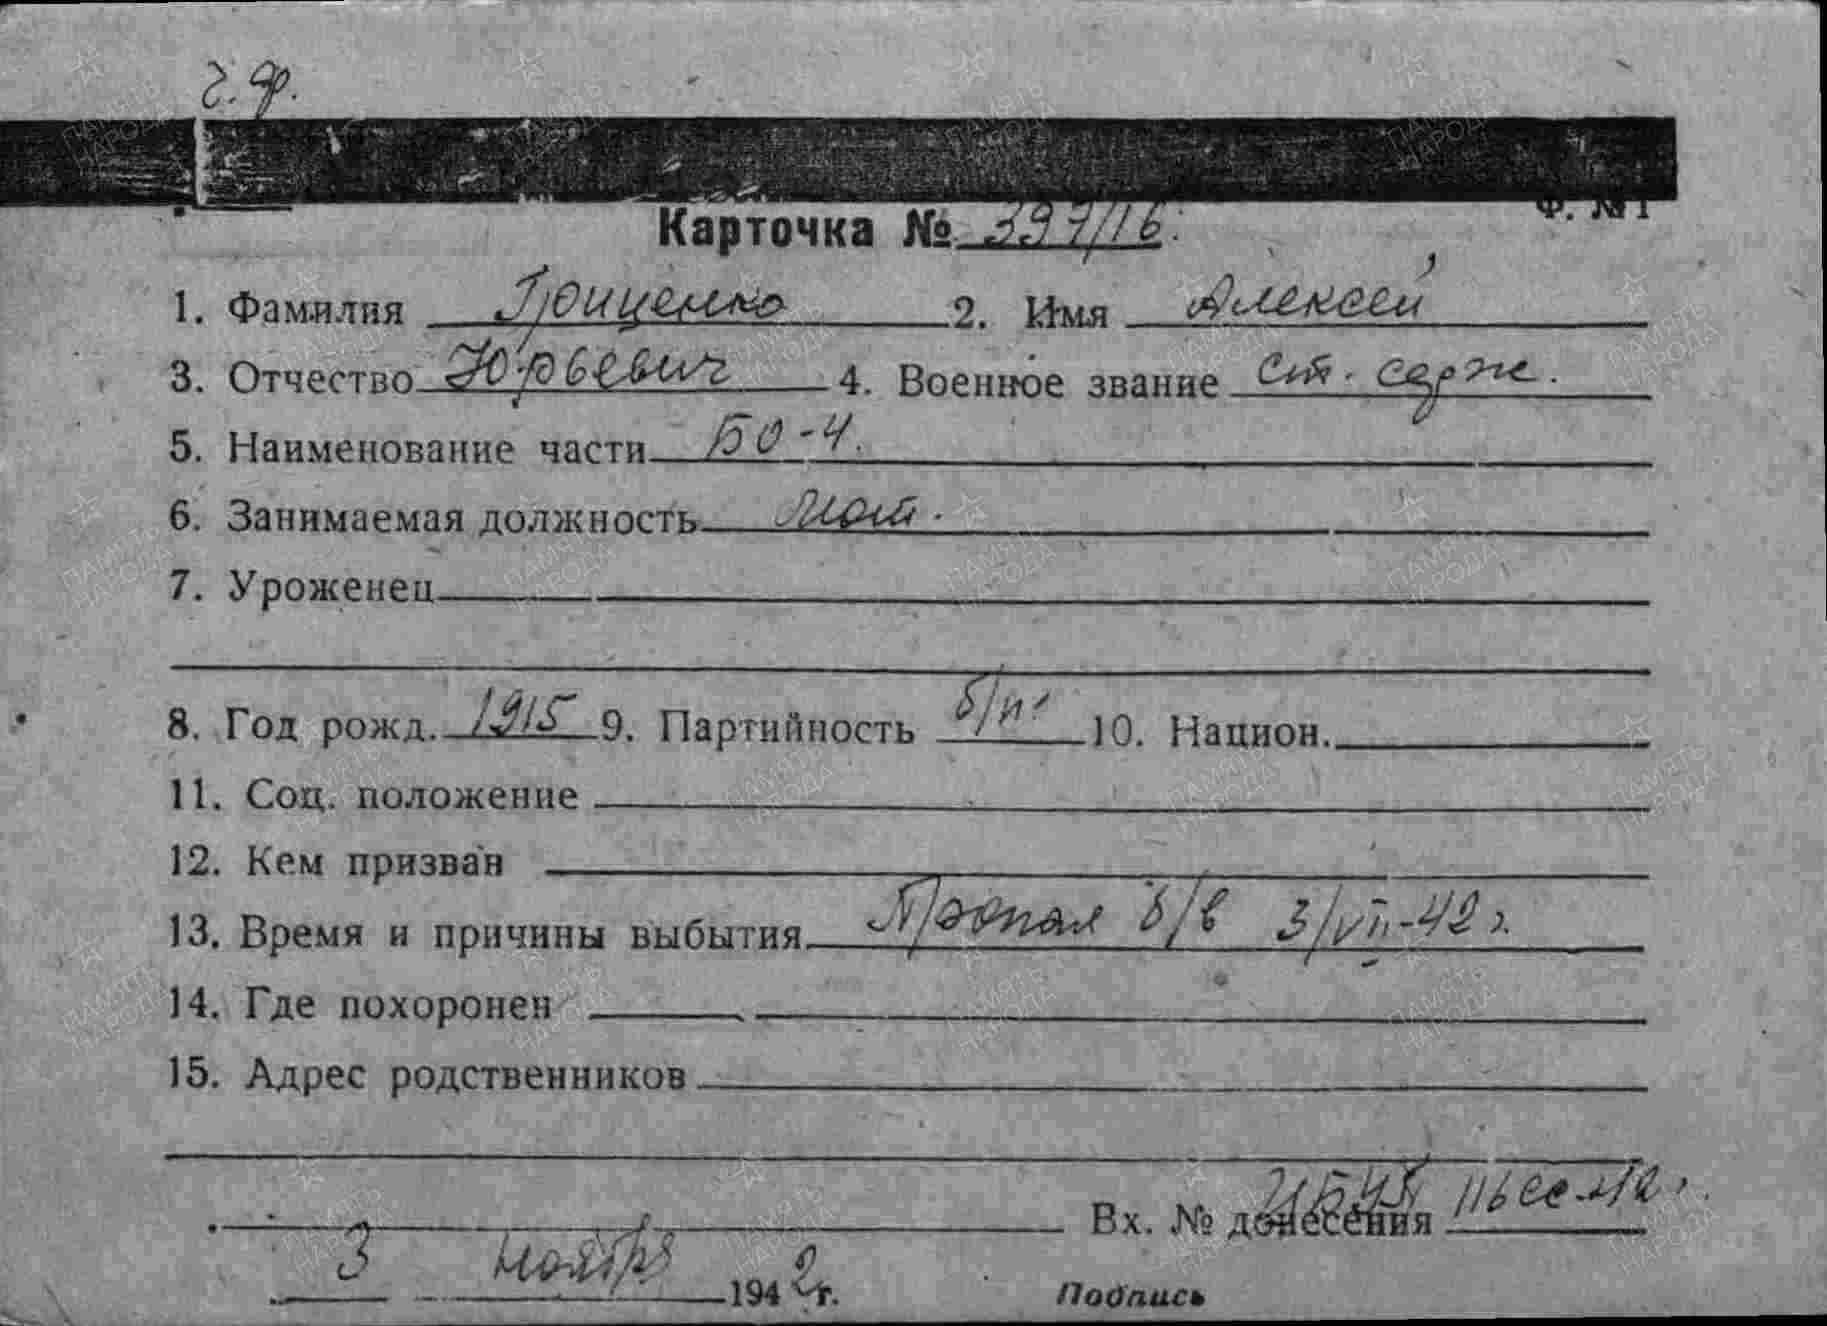 ч. ф.
Ф. № 1
Карточка № 397/16.
1. Фамилия Гриценко 2. Имя Алексей
3. Отчество Юрьевич 4. Военное звание ст. серж.
5. Наименование части БО-4.
6. Занимаемая должность мот.
7. Уроженец
8. Год рожд. 1915 9. Партийность б/п. 10. Национ.
11. Соц. положение
12. Кем призван
13. Время и причины выбытия Пропал б/в 3/VII-42 г.
14. Где похоронен
15. Адрес родственников
Вх. № донесения 116сс-42.
3 ноября 1942 г. Подпись
ПАМЯТЬ НАРОДА